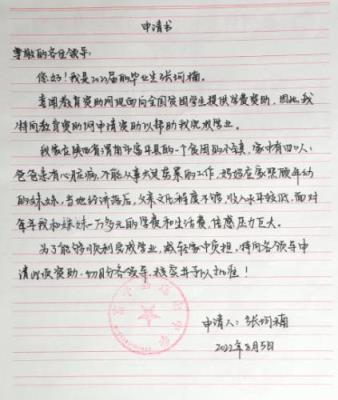 申请书
尊敬的各位领导:
您好!我是2022届的毕业生张珂楠。
喜闻教育资助网现面向全国贫困学生提供学费资助,因此,我
特向教育资助网申请资助以帮助我完成学业。
我家在陕西省渭南市富平县的一个贫困的乡镇,家中有四口人,
爸爸患有心脏病,不能从事太过劳累的工作,妈妈在家照顾年幼
的妹妹,当地经济落后,父亲文化程度不够,收入水平较低,面对
每年我和妹妹一万多元的学费和生活费,倍感压力巨大。
为了能够顺利完成学业,减轻家中负担,特向各领导申
请此次资助,切盼各领导,核实并予以批准!
申请人:张珂楠
2022年8月5日